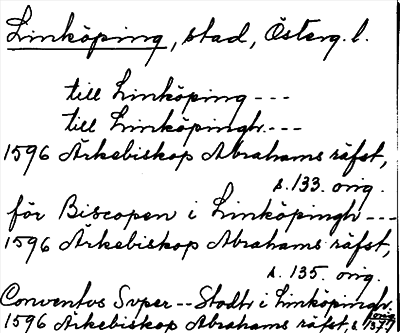 Linköping, stad, Österg. l.
till Linköping ---
till Linköpingh ---
1596 Ärkebiskop Abrahams räfst,
s. 133. orig.
för Biscopen i Linköpingh ---
1596 Ärkebiskop Abrahams räfst,
s. 135. orig.
Conventus Super -- Stadh i Linköpingh.
1596 Ärkebiskop Abrahams räfst, s. 137. orig.